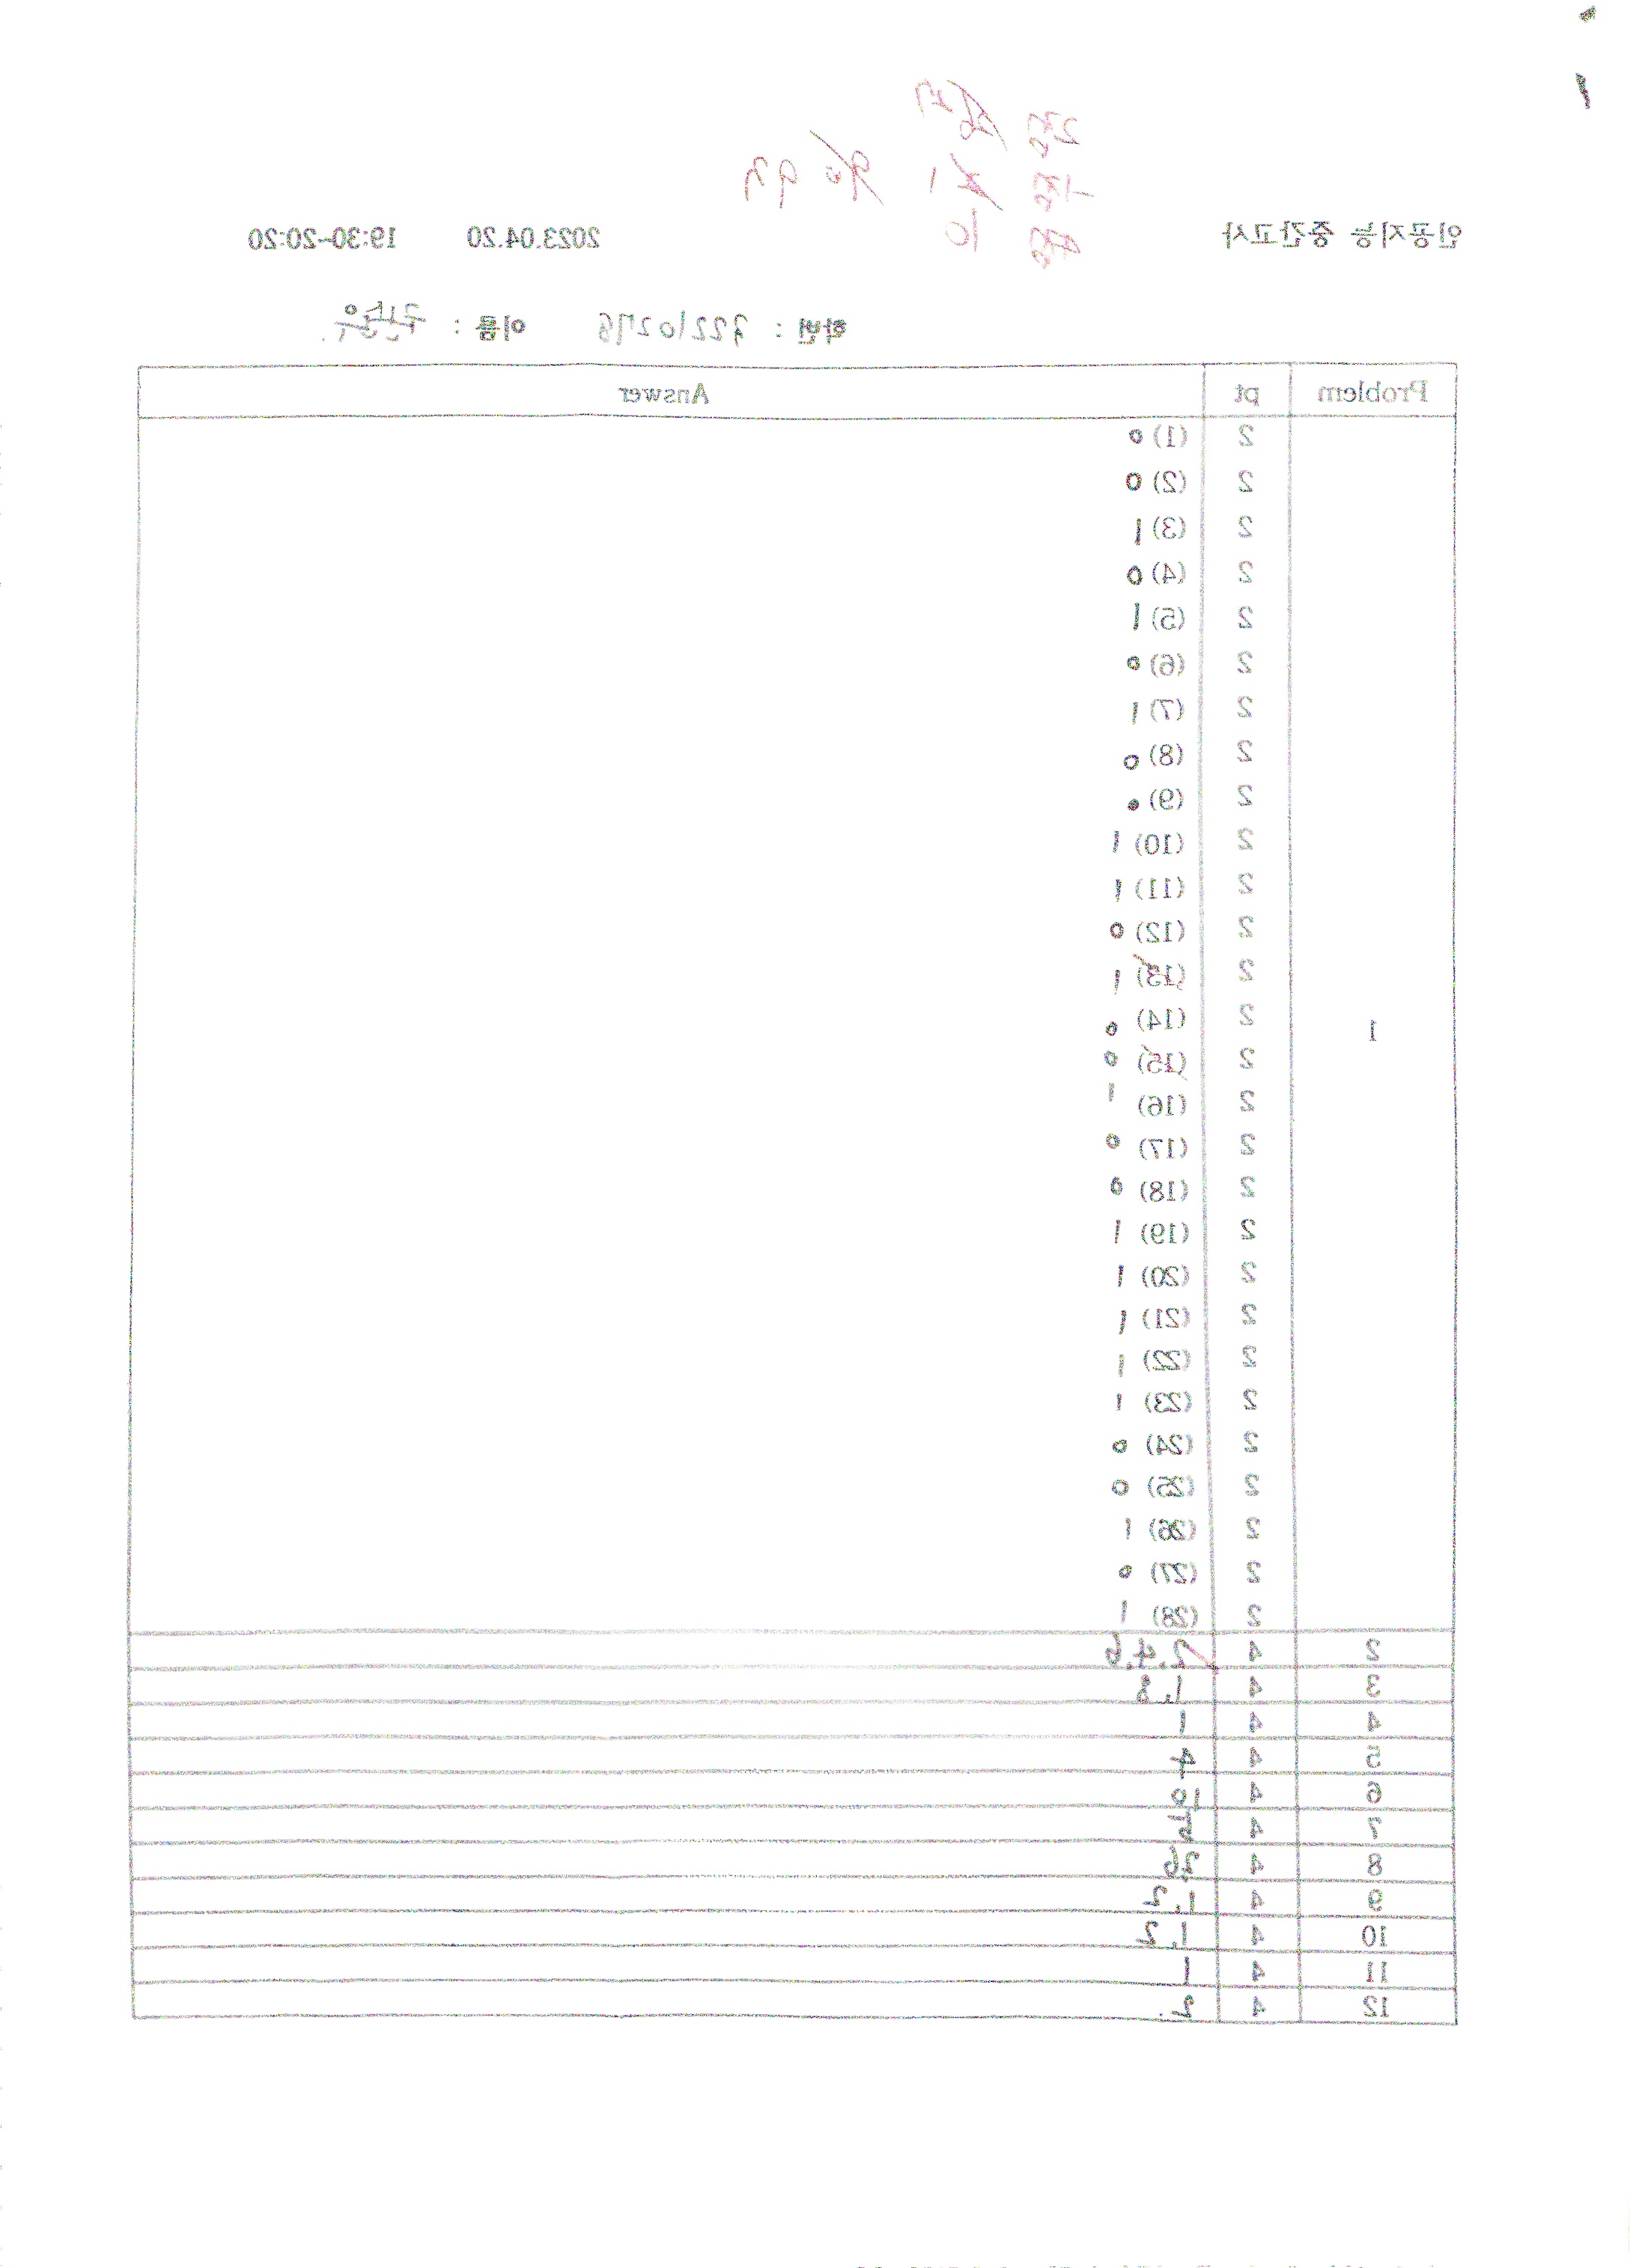 인공지능 중간고사 2023.04.20 19:30-20:20
학번 : 이름 :
Problem pt Answer
1
2 (1) 0
2 (2) 0
2 (3) 1
2 (4) 0
2 (5) 1
2 (6) 0
2 (7) 1
2 (8) 0
2 (9)
2 (10) 1
2 (11) 1
2 (12) 0
2 (13) 1
2 (14) 0
2 (15) 0
2 (16) 1
2 (17) 0
2 (18) 0
2 (19) 1
2 (20) 1
2 (21) 1
2 (22) 1
2 (23) 1
2 (24) 0
2 (25) 0
2 (26) 1
2 (27) 0
2 (28) 1
2 4 2.4.6
3 4 1.8
4 4 1
5 4 4
6 4
7 4
8 4
9 4 1,2
10 4 1,2
11 4 1
12 4 2.